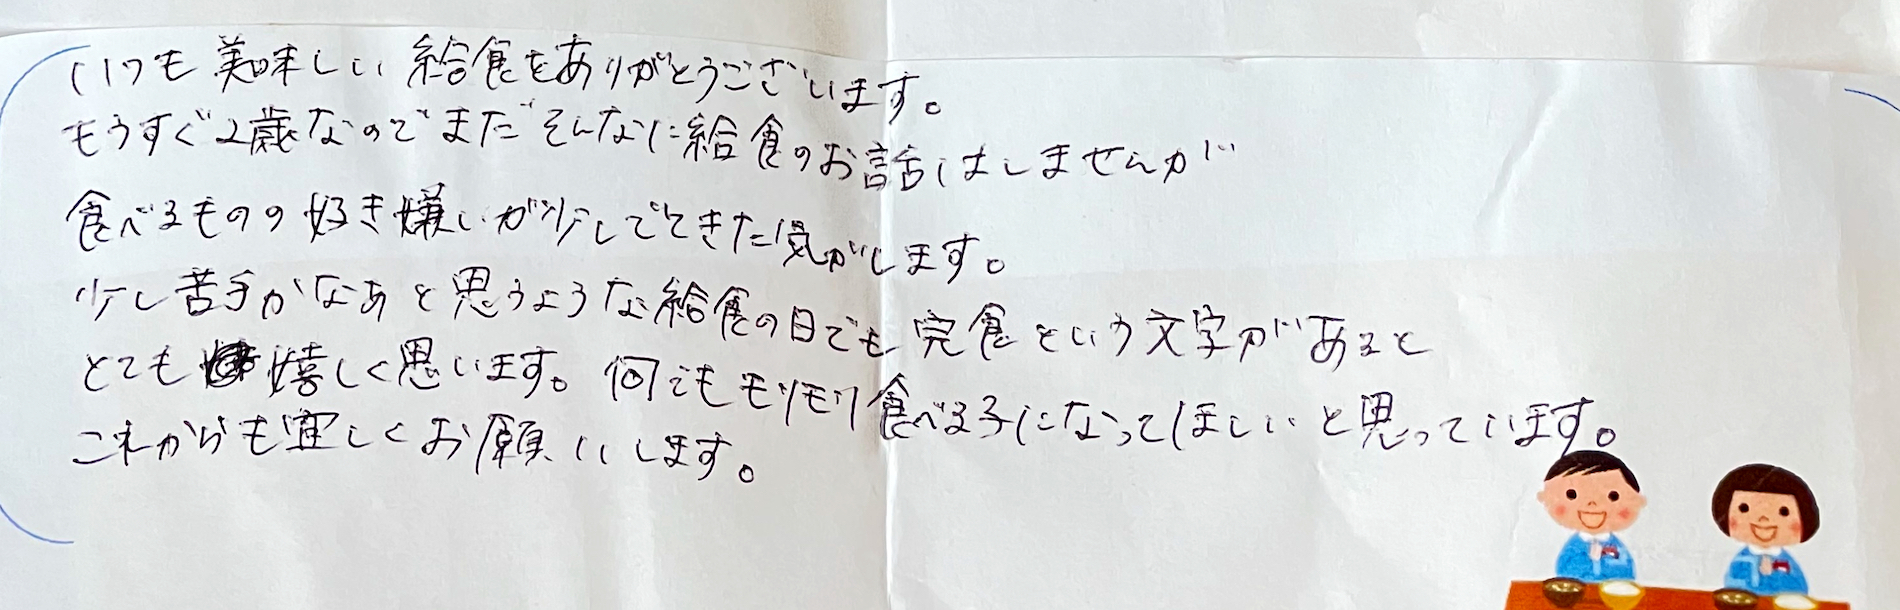 いつも美味しい給食をありがとうございます。
もうすぐ2歳なのでまだそんなに給食のお話はしませんが
食べるものの好き嫌いが少しでてきた気がします。
少し苦手かなあと思うような給食の日でも完食という文字があると
とても嬉しく思います。何でもモリモリ食べる子になってほしいと思っています。
これからも宜しくお願いします。